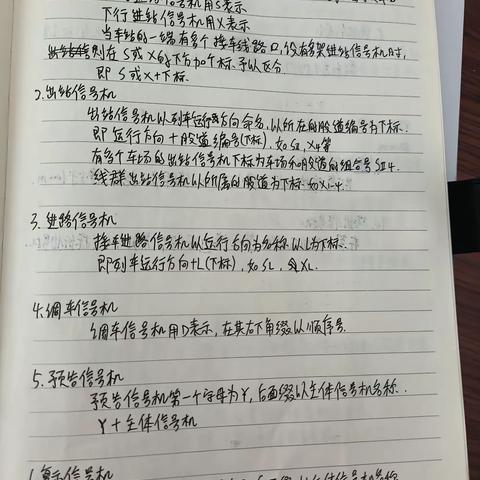 进站信号机用S表示
下行进站信号机用X表示
当车站的一端有多个接车线路口,设有多架进站信号机时,
则在S或X的右下方加个标予以区分.
即 S或X+下标.
2.出站信号机
出站信号机以列车运行方向命名,以所在的股道编号为下标.
即运行方向+股道编号(下标).如SII,X4等
有多个车场的出站信号机下标为车场和股道的组合号SII4.
线群出站信号机以所属的股道为下标.如X1-4.
3.进路信号机
接车进路信号机以运行方向为名称以L为下标.
即列车运行方向+L(下标),如SL,XL.
4.调车信号机
调车信号机用D表示,在其右下角缀以顺序号.
5.预告信号机
预告信号机第一个字母为Y,后面缀以主体信号机名称.
Y+主体信号机
复示信号机